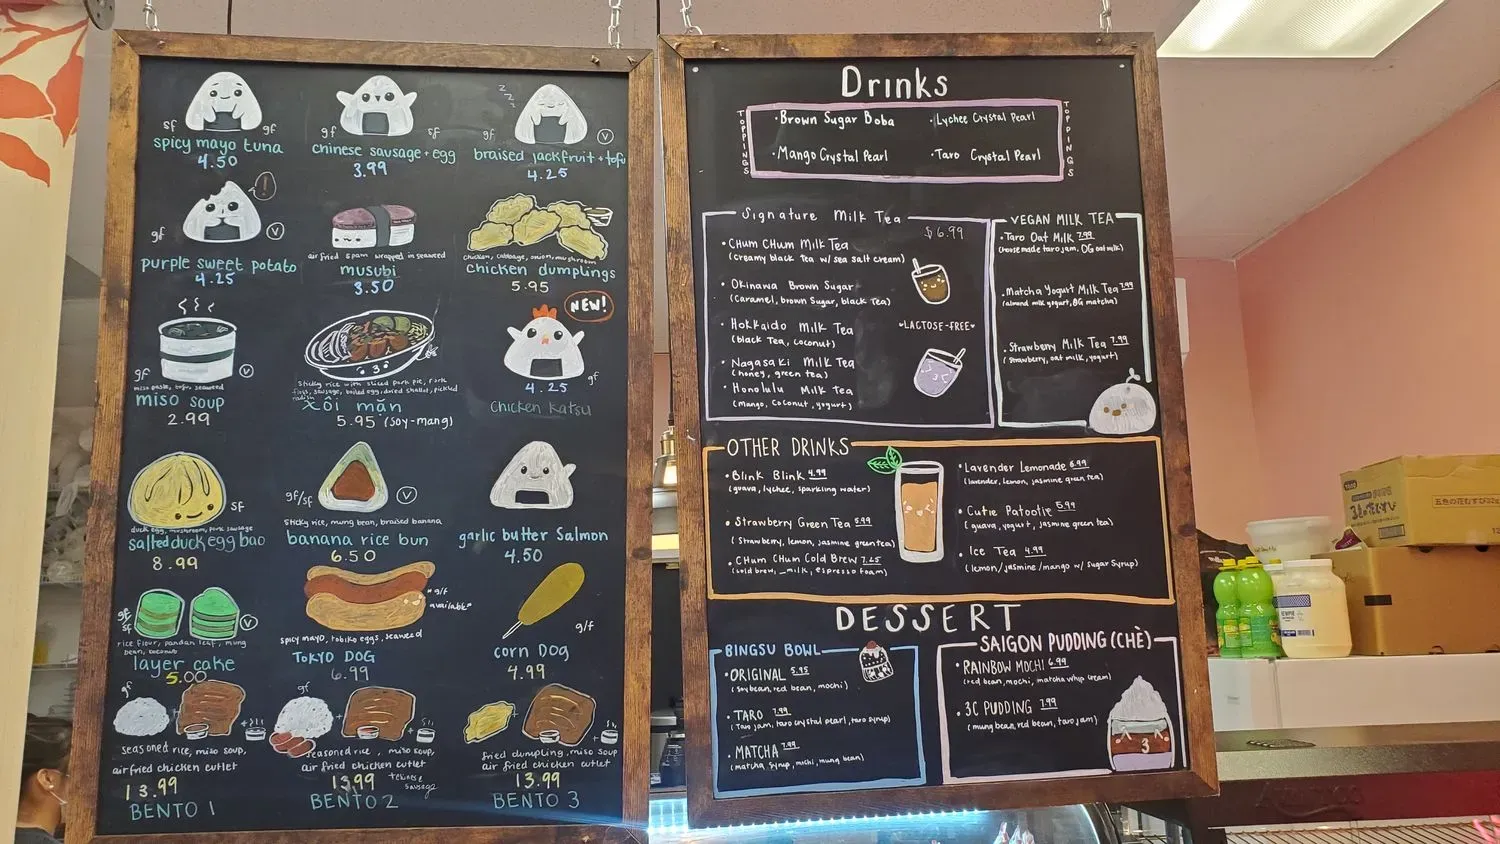 sf
gf
spicy mayo tuna
4.50
gf
sf
chinese sausage + egg
3.99
z z z
gf
V
braised jackfruit + tofu
4.25
!
gf
V
purple sweet potato
4.25
air fried spam wrapped in seaweed
musubi
3.50
chicken, cabbage, onion, mushroom
chicken dumplings
5.95
gf
V
miso paste, tofu, seaweed
miso soup
2.99
sticky rice with sliced pork pie, pork
floss, sausage, boiled egg, dried shallot, pickled
radish
xôi mặn
5.95 (soy-mang)
NEW!
4.25
gf
chicken katsu
sf
duck egg, mushroom, pork sausage
salted duck egg bao
8.99
gf/sf
V
sticky rice, mung bean, braised banana
banana rice bun
6.50
garlic butter Salmon
4.50
gf
sf
V
rice flour, pandan leaf, mung
bean, coconut
layer cake
5.00
*g/f
available*
spicy mayo, tobiko eggs, seaweed
TOKYO DOG
6.99
g/f
corn Dog
4.99
gf
+
+
seasoned rice, miso soup,
air fried chicken cutlet
13.99
BENTO 1
gf
+
+
seasoned rice, miso soup,
air fried chicken cutlet
13.99
+ chinese
sausage
BENTO 2
+
+
fried dumpling, miso soup
air fried chicken cutlet
13.99
BENTO 3
Drinks
TOPPINGS
• Brown Sugar Boba
• Lychee Crystal Pearl
• Mango Crystal Pearl
• Taro Crystal Pearl
TOPPINGS
Signature Milk Tea
$6.99
• CHUM CHUM Milk Tea
(creamy black tea w/ sea salt cream)
• Okinawa Brown Sugar
(Caramel, brown sugar, black Tea)
• Hokkaido Milk Tea
(black Tea, coconut)
• Nagasaki Milk Tea
(honey, green tea)
• Honolulu Milk Tea
(mango, coconut, yogurt)
♥LACTOSE-FREE♥
VEGAN MILK TEA
• Taro Oat Milk 7.99
(housemade taro jam, OG oat milk)
• Matcha Yogurt Milk Tea 7.99
(almond milk yogurt, OG matcha)
• Strawberry Milk Tea 7.99
(strawberry, oat milk, yogurt)
OTHER DRINKS
• Blink Blink 4.99
(guava, lychee, sparkling water)
• Strawberry Green Tea 5.99
(strawberry, lemon, jasmine green tea)
• CHUM CHUM Cold Brew 7.25
(cold brew, milk, espresso foam)
• Lavender Lemonade 6.99
(lavender, lemon, jasmine green tea)
• Cutie Patootie 5.99
(guava, yogurt, jasmine green tea)
• Ice Tea 4.99
(lemon/jasmine/mango w/ sugar syrup)
DESSERT
BINGSU BOWL
• ORIGINAL 5.95
(soybean, red bean, mochi)
• TARO 7.99
(taro jam, taro crystal pearl, taro syrup)
• MATCHA 7.99
(matcha syrup, mochi, mung bean)
SAIGON PUDDING (CHÈ)
• RAINBOW MOCHI 6.99
(red bean, mochi, matcha whip cream)
• 3C PUDDING 7.99
(mung bean, red bean, taro jam)